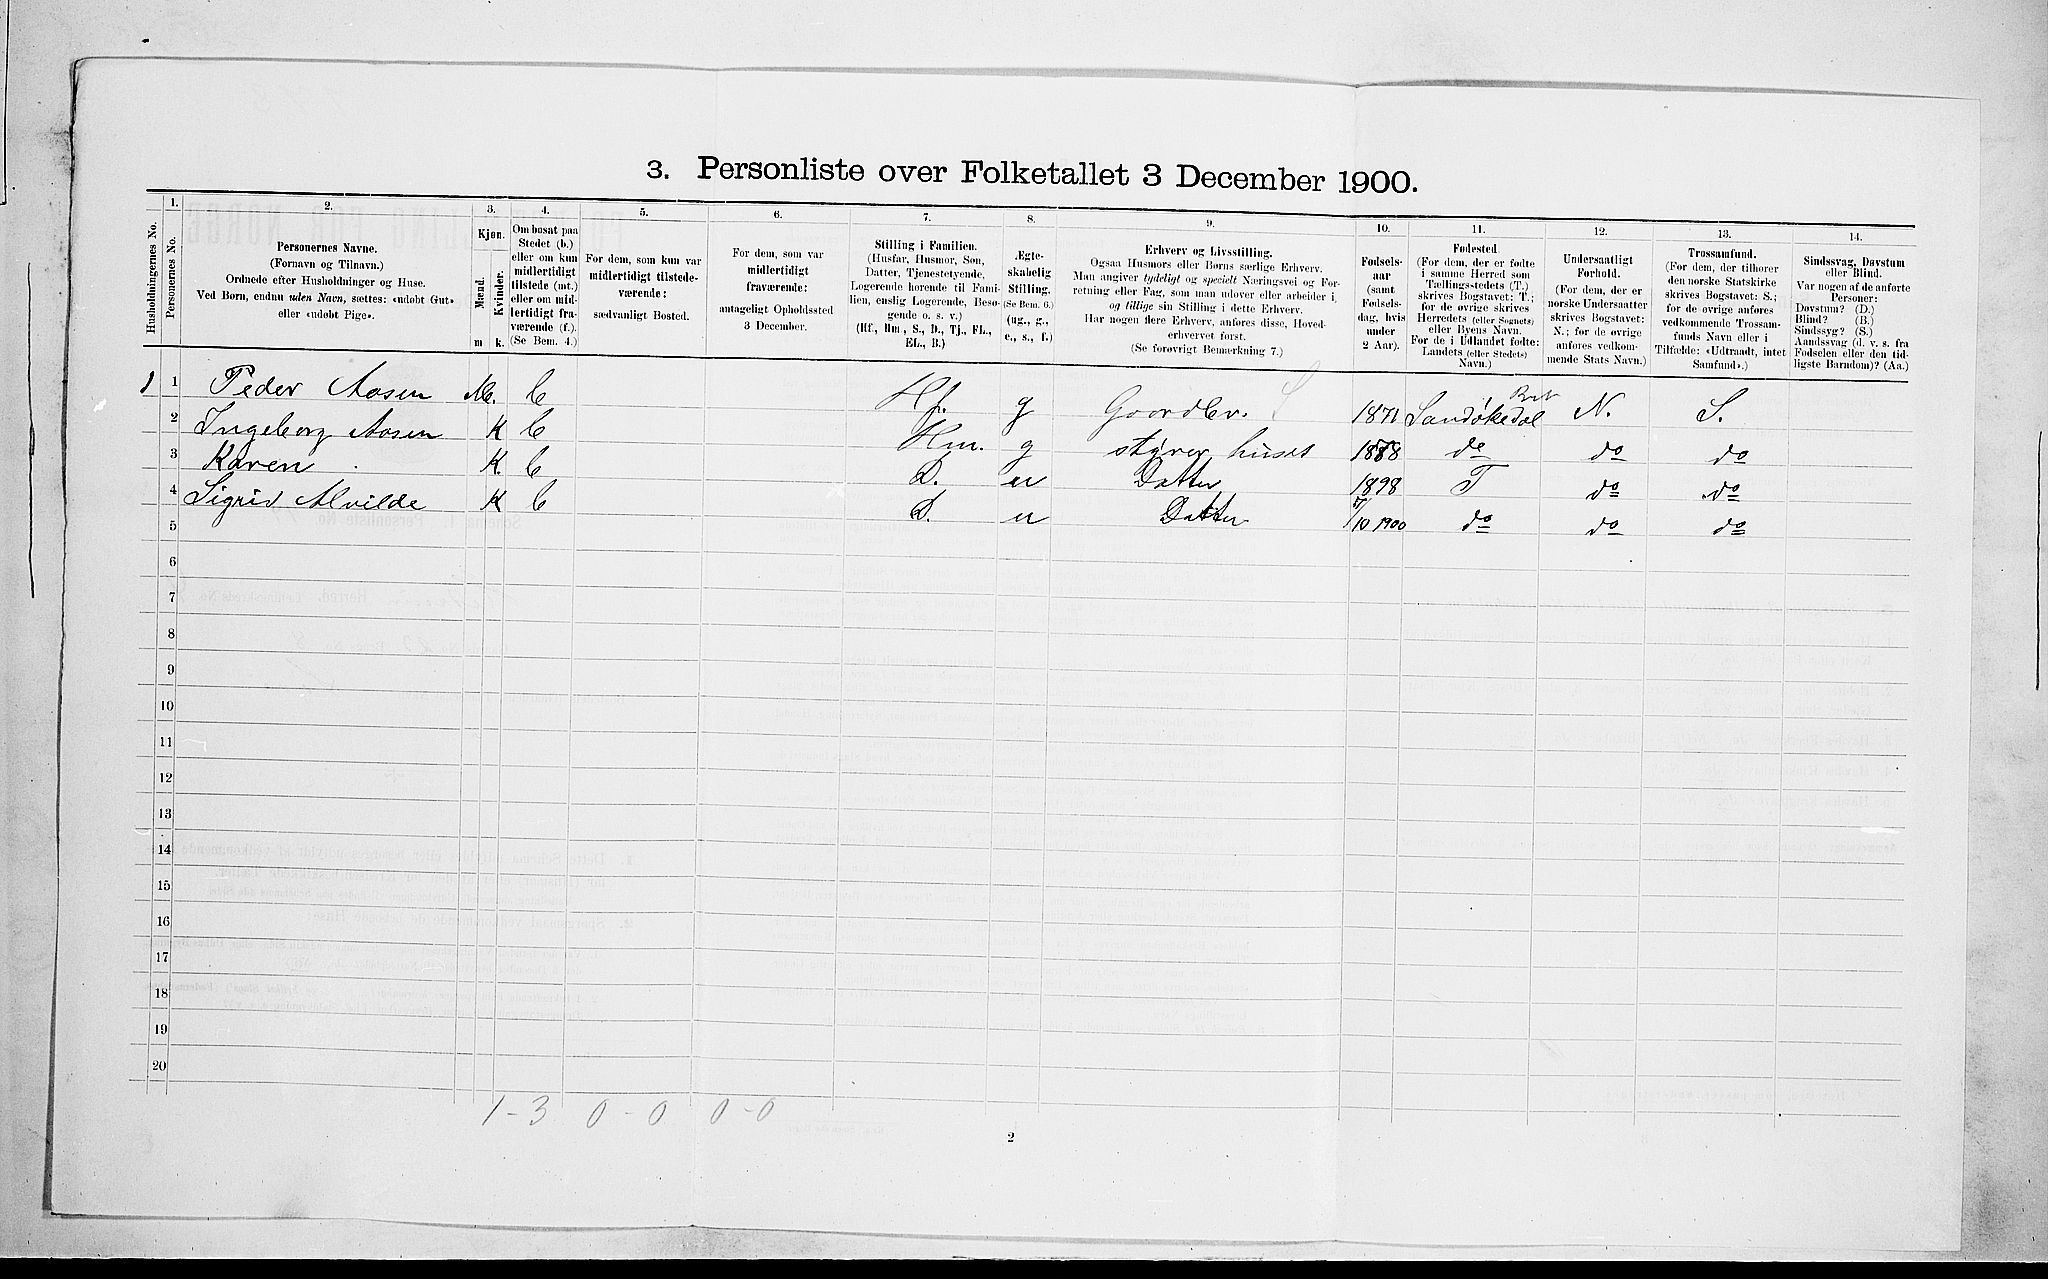 3. Personliste over Folketallet 3 December 1900.
Husholdningernes No.
1.
Personernes No.
2.
Personernes Navne.
(Fornavn og Tilnavn.)
Ordnede efter Husholdninger og Huse.
Ved Børn, endnu uden Navn, sættes: «udøbt Gut»
eller «udøbt Pige».
3.
Kjøn.
Mænd.
Kvinder.
m k.
4.
Om bosat paa
Stedet (b.)
eller om kun
midlertidigt
tilstede (mt.)
eller om mid-
lertidigt fra-
værende (f.).
(Se Bem. 4.)
5.
For dem, som kun var
midlertidigt tilstede-
værende:
sædvanligt Bosted.
6.
For dem, som var
midlertidigt
fraværende:
antageligt Opholdssted
3 December.
7.
Stilling i Familien.
(Husfar, Husmor, Søn,
Datter, Tjenestetyende,
Logerende hørende til Fami-
lien, enslig Logerende, Besø-
gende o. s. v.)
(Hf., Hm., S., D., Tj., FL.,
EL., B.)
8.
Ægte-
skabelig
Stilling.
(Se Bem. 6.)
(ug., g.,
e., s., f.)
9.
Erhverv og Livsstilling.
Ogsaa Husmors eller Børns særlige Erhverv.
Man angiver tydeligt og specielt Næringsvei og For-
retning eller Fag, som man udøver eller arbeider i,
og tillige sin Stilling i dette Erhverv.
Har nogen flere Erhverv, anføres disse, Hoved-
erhvervet først.
(Se forøvrigt Bemærkning 7.)
10.
Fødsels-
aar
(samt
Fødsels-
dag, hvis
under
2 Aar).
11.
Fødested.
(For dem, der er fødte
i samme Herred som
Tællingsstedets (T.)
skrives Bogstavet: T.;
for de øvrige skrives
Herredets (eller Sognets)
eller Byens Navn.
For de i Udlandet fødte:
Landets (eller Stedets)
Navn.)
12.
Undersaatligt
Forhold.
(For dem, der er
norske Undersaatter
skrives Bogstavet:
N.; for de øvrige
anføres vedkom-
mende Stats Navn.)
13.
Trossamfund.
(For dem, der tilhører
den norske Statskirke
skrives Bogstavet: S.;
for de øvrige anføres
vedkommende Trossam-
funds Navn eller i
Tilfælde: «Udtraadt, intet
Samfund».)
14.
Sindssvag, Døvstum
eller Blind.
Var nogen af de anførte
Personer:
Døvstum? (D.)
Blind? (B.)
Sindssyg? (S.)
Aandssvag (d. v. s. fra
Fødselen eller den tid-
ligste Barndom)? (Aa.)
1 1 Peder Aasen M. b Hf. g Gaardbr. S 1871 Sandøkedal N. S.
2 Ingeborg Aasen K b Hm. g styrer huset 1878 do do do
3 Karen K. b D. u Datter 1898 T do do
4 Sigrid Alvilde K b D. u Datter /10 1900 do do do
5
6
7
8
9
10
11
12
13
14
15
16
17
18
19
20
1-3 0-0 0-0
2